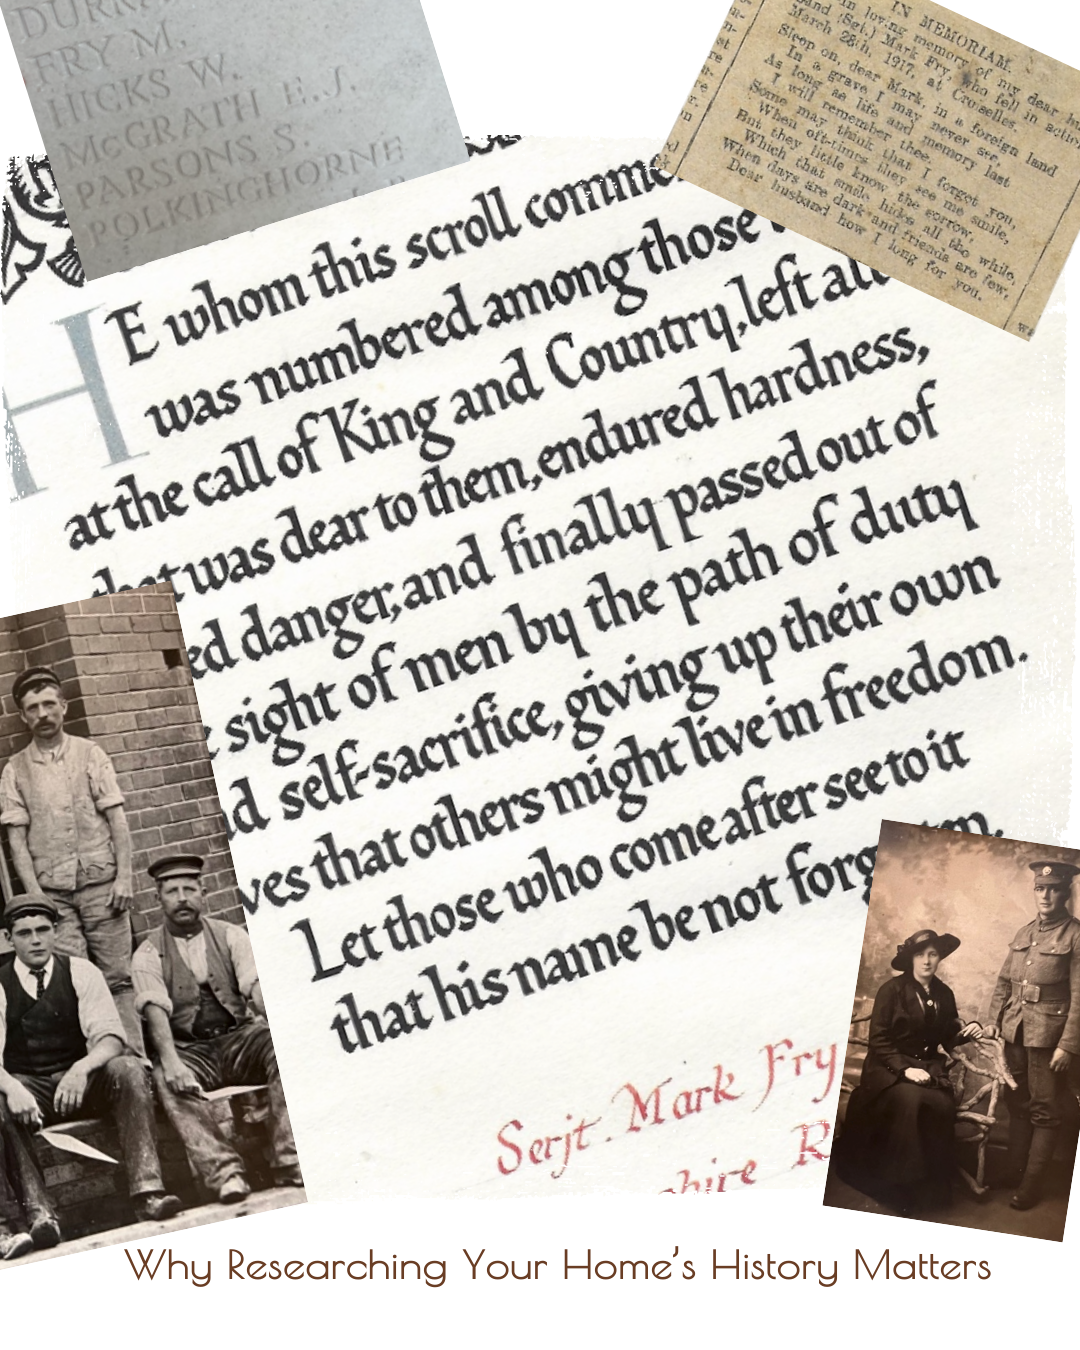 FRY M.
HICKS W.
McGRATH E.J.
PARSONS S.
POLKINGHORNE
IN MEMORIAM.
in loving memory of my dear
(Sgt.) Mark Fry, who fell in action
March 28th, 1917, at Croiselles.
Sleep on, dear Mark, in a foreign land
In a grave I may never see,
As long as life and memory last
I will remember thee.
Some may think that I forgot you,
When oft-times they see me smile,
But they little know the sorrow,
Which that smile hides all the while,
When days are dark and friends are few,
Dear husband how I long for you.
HE whom this scroll
was numbered among those
at the call of King and Country, left
was dear to them, endured hardness,
danger, and finally passed out of
sight of men by the path of duty
self-sacrifice, giving up their own
that others might live in freedom.
Let those who come after see to it
that his name be not
Serjt. Mark Fry
Why Researching Your Home's History Matters